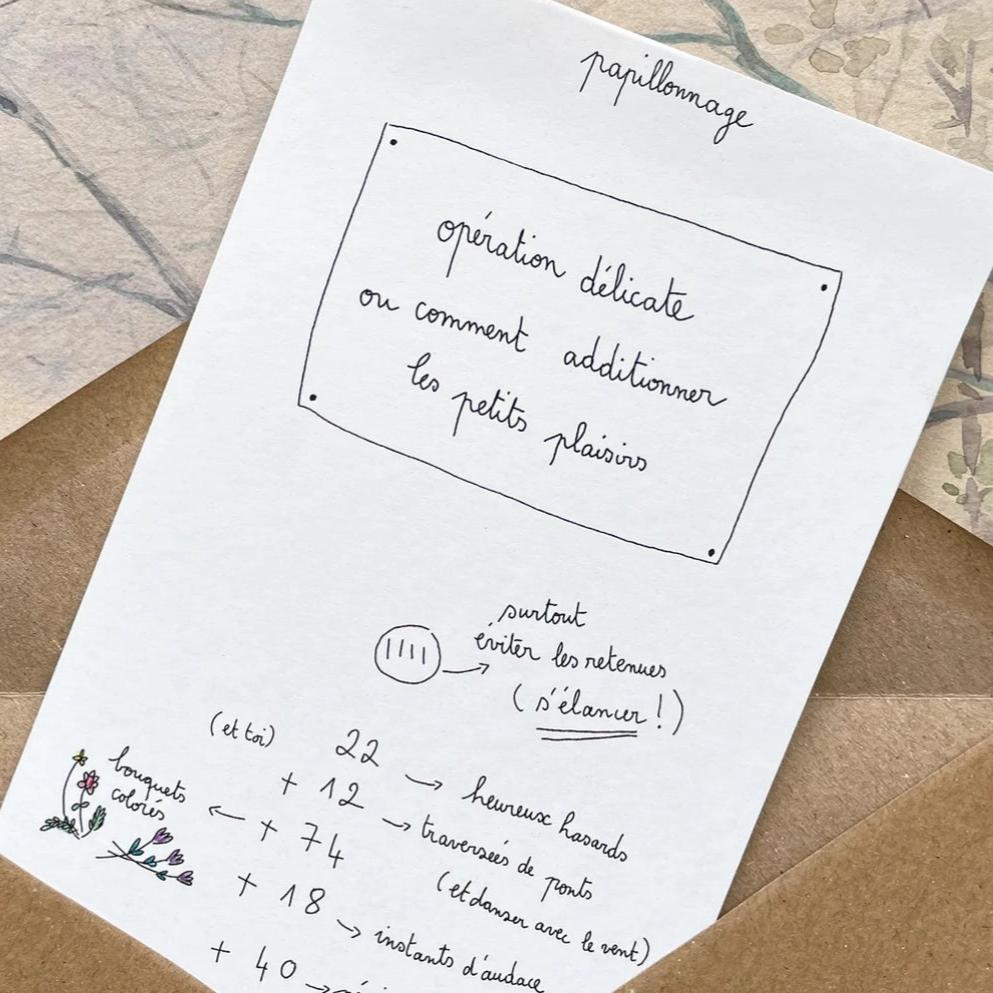 papillonnage
opération délicate
ou comment additionner
les petits plaisirs
surtout
éviter les retenues
(s'élancer !)
(et toi) 22 → heureux hasards
+ 12 → traversées de ponts
(et danser avec le vent)
bouquets
colorés ← + 74
+ 18 → instants d'audace
+ 40 →